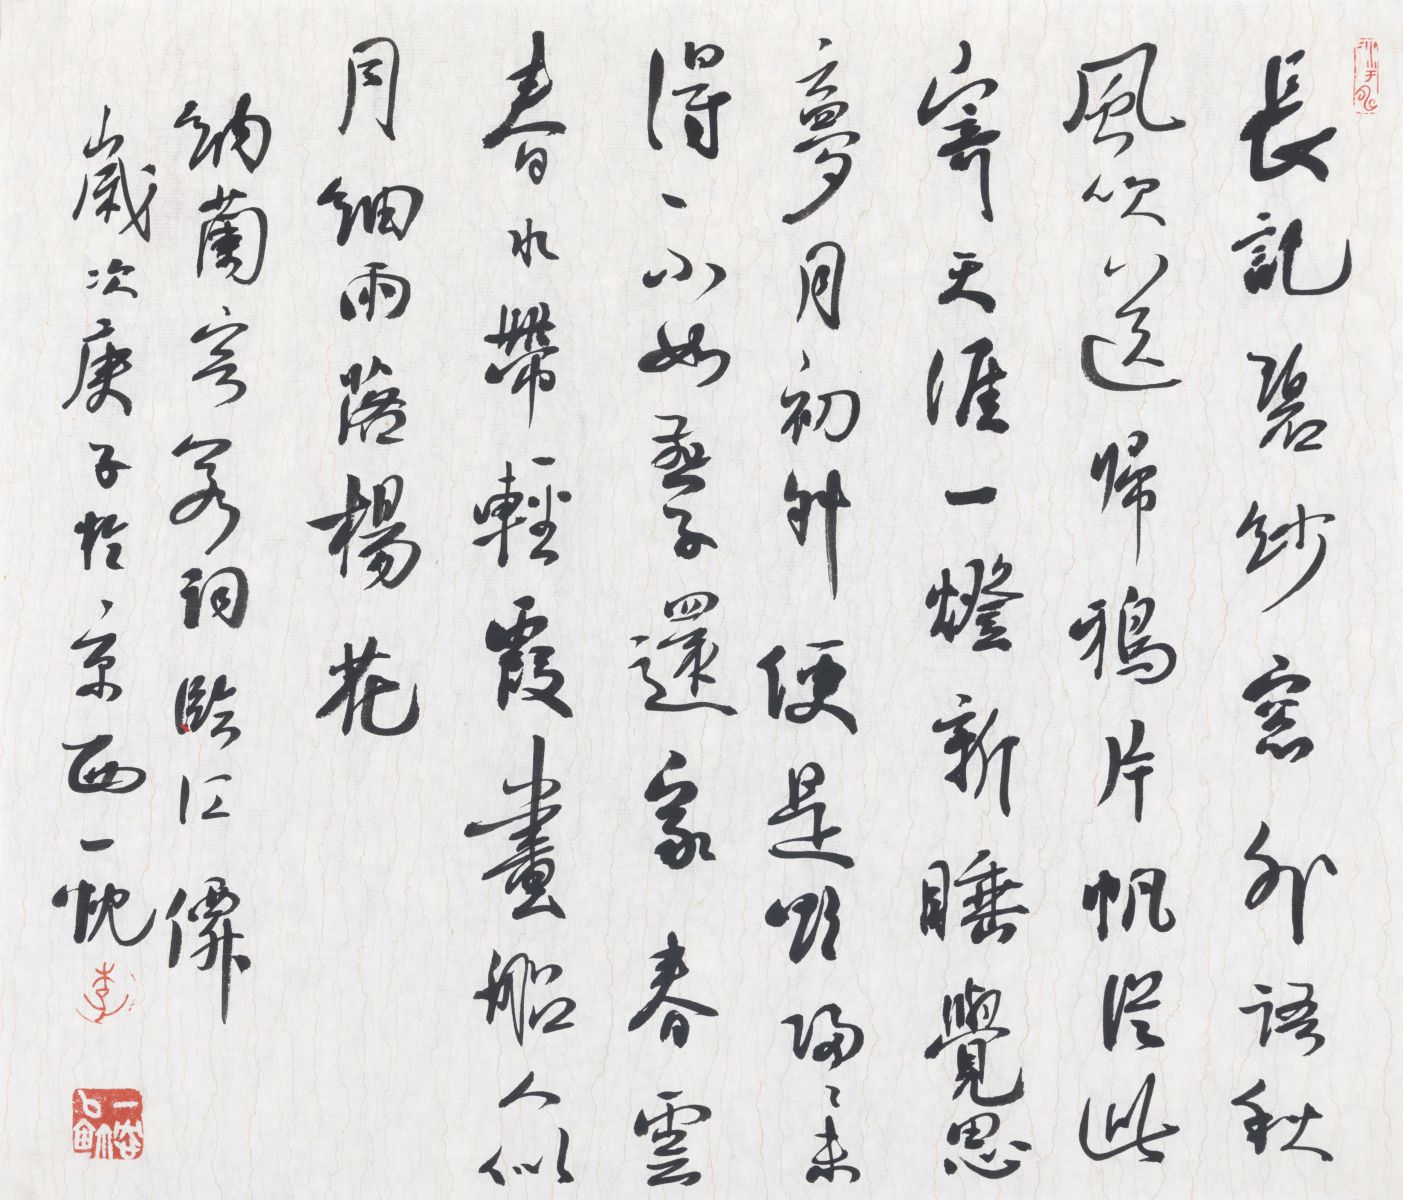 長記碧紗窓外語秋
風吹送帰鴉片帆從此
寄天涯一燈新睡覺思
夢月初斜便是欲歸〻未
得不如燕子還家春雲
春水帶輕霞畫船人似
月細雨落楊花
納蘭容若詞臨江僊
歲次庚子於京西一忱
李